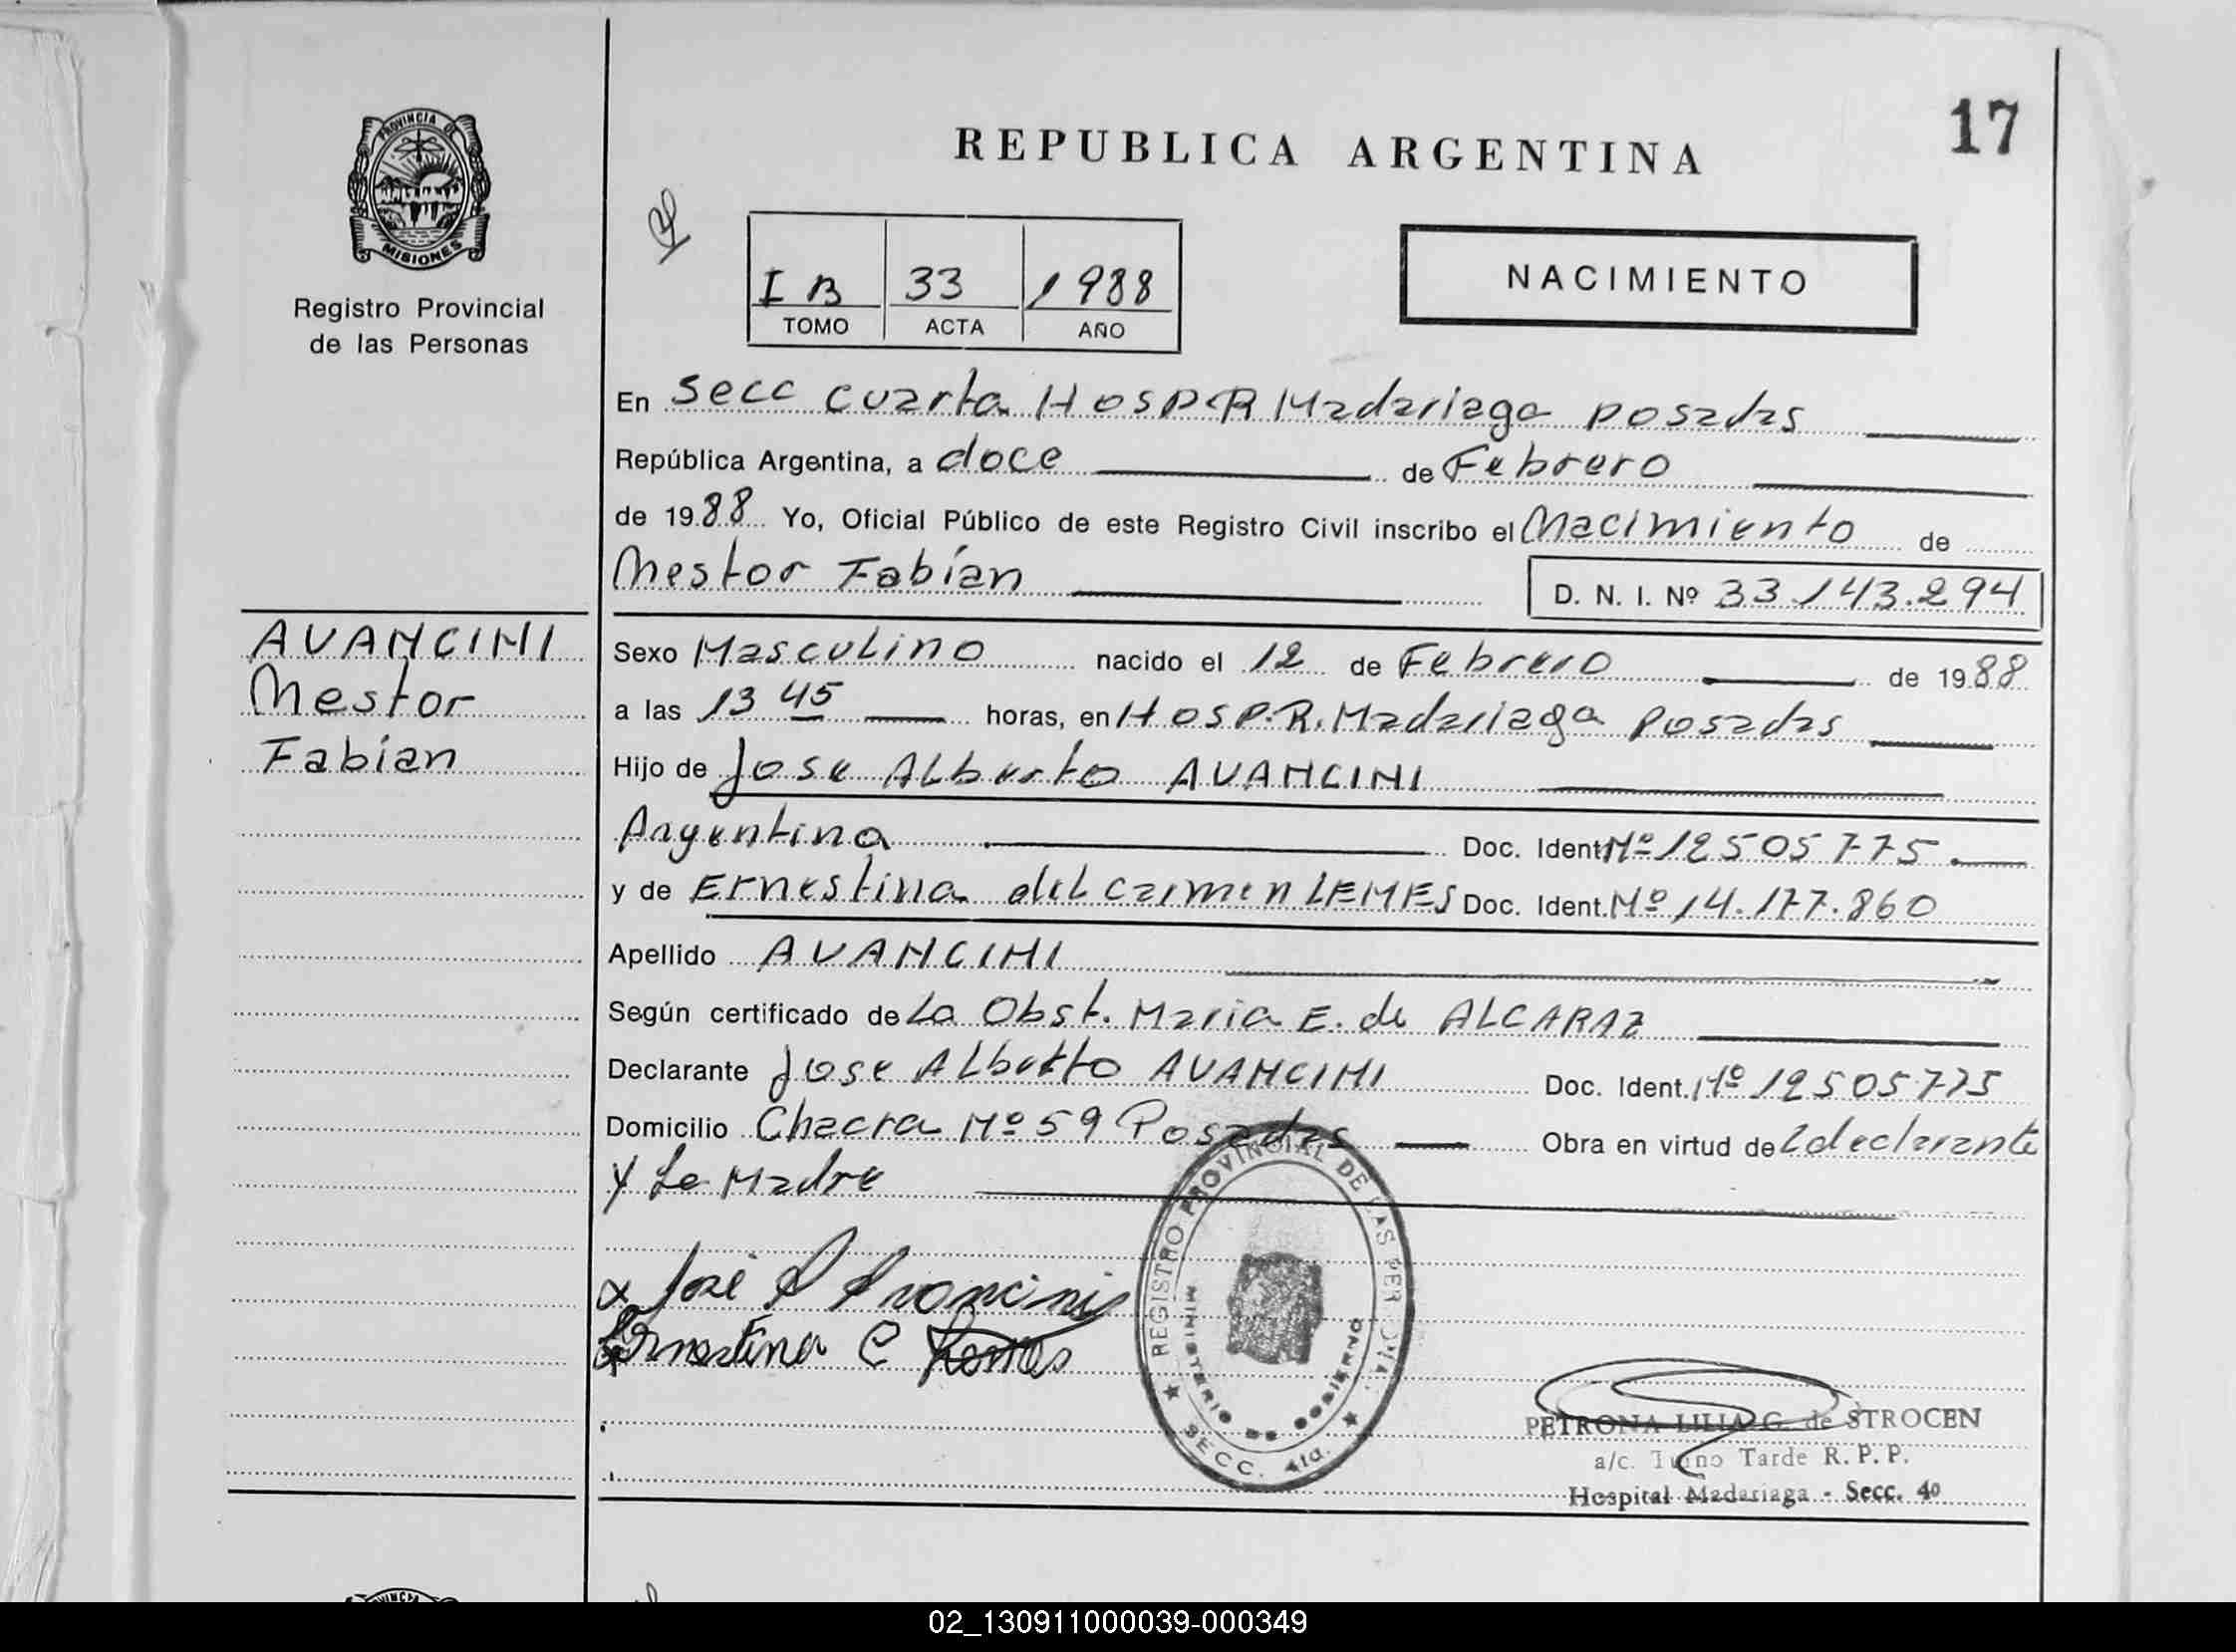 PROVINCIA DE
MISIONES
Registro Provincial
de las Personas
AVANCINI
Nestor
Fabian
17
REPUBLICA ARGENTINA
I B 33 1988
TOMO ACTA AÑO
NACIMIENTO
En Secc cuarta Hosp R Madariaga posadas
República Argentina, a doce de Febrero
de 1988 Yo, Oficial Público de este Registro Civil inscribo el Nacimiento de
Nestor Fabían D. N. I. Nº 33.143.294
Sexo Masculino nacido el 12 de Febrero de 1988
a las 13 45 horas, en Hosp. R. Madariaga Posadas
Hijo de Jose Alberto AVANCINI
Argentina Doc. Ident Nº 12505775
y de Ernestina del Carmen LEMES Doc. Ident. Nº 14.177.860
Apellido AVANCINI
Según certificado de La Obst. Maria E. de ALCARAZ
Declarante Jose Alberto AVANCINI Doc. Ident. Nº 12505775
Domicilio Chacra Nº 59 Posadas Obra en virtud de L declarante
y La Madre
José A Avancini
Ernestina C Lemes
REGISTRO PROVINCIAL DE LAS PER
MINISTERIO DE GOBIERNO
SECC. 4ta.
PETRONA LILIA G. de STROCEN
a/c. Turno Tarde R. P. P.
Hospital Madariaga - Secc. 4º
02_130911000039-000349